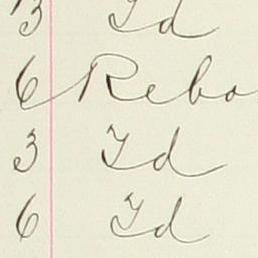 3 Id
6 Rebo
3 Id
6 Id